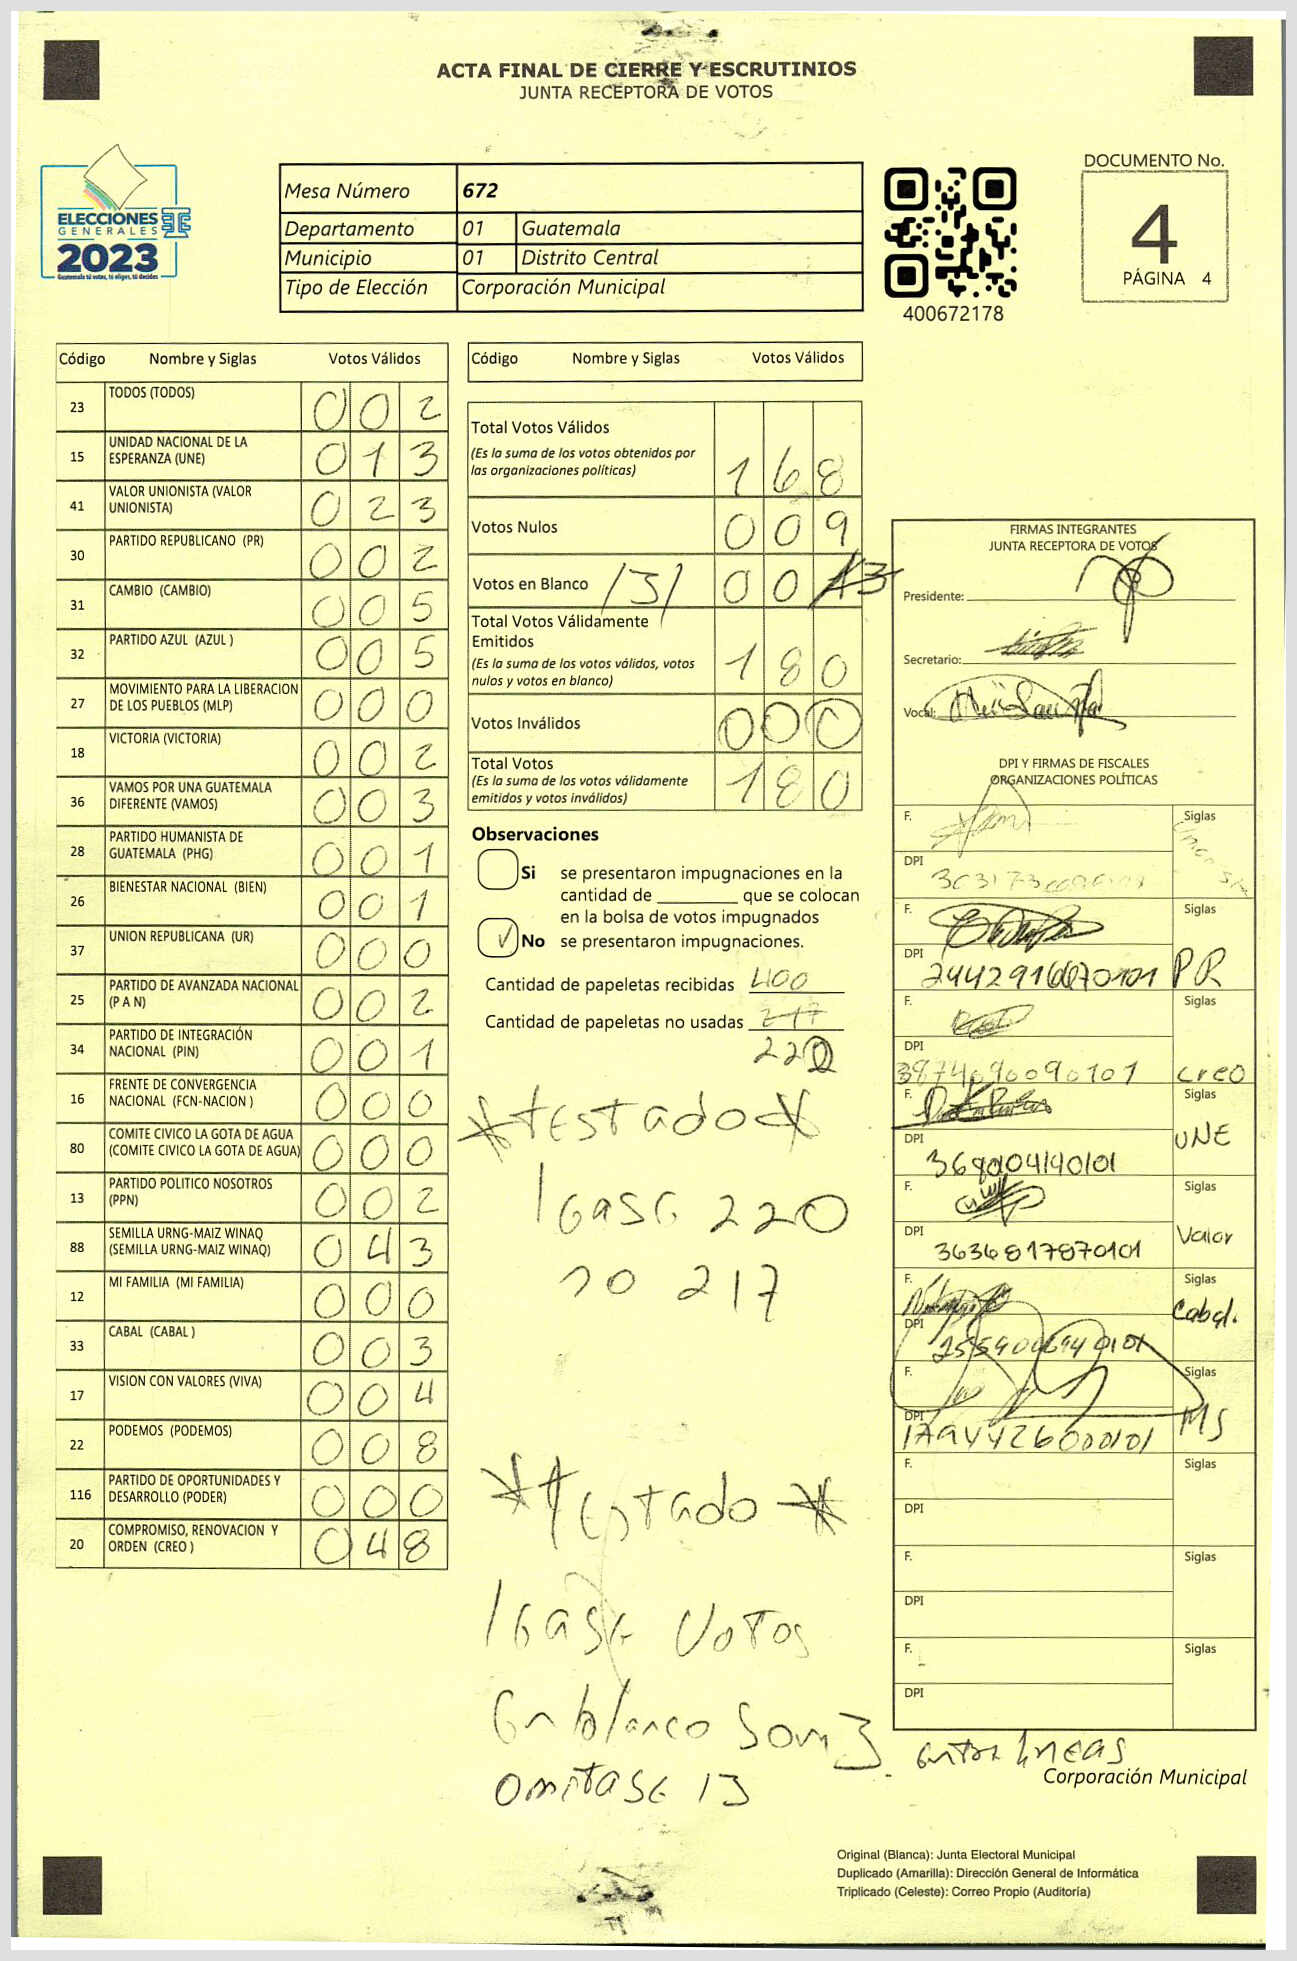 ACTA FINAL DE CIERRE Y ESCRUTINIOS
JUNTA RECEPTORA DE VOTOS
ELECCIONES
GENERALES
2023
Guatemala tú votas, tú eliges, tú decides
Mesa Número 672
Departamento 01 Guatemala
Municipio 01 Distrito Central
Tipo de Elección Corporación Municipal
400672178
DOCUMENTO No.
4
PÁGINA 4
Código Nombre y Siglas Votos Válidos
23 TODOS (TODOS) 0 0 2
15 UNIDAD NACIONAL DE LA ESPERANZA (UNE) 0 1 3
41 VALOR UNIONISTA (VALOR UNIONISTA) 0 2 3
30 PARTIDO REPUBLICANO (PR) 0 0 2
31 CAMBIO (CAMBIO) 0 0 5
32 PARTIDO AZUL (AZUL ) 0 0 5
27 MOVIMIENTO PARA LA LIBERACION DE LOS PUEBLOS (MLP) 0 0 0
18 VICTORIA (VICTORIA) 0 0 2
36 VAMOS POR UNA GUATEMALA DIFERENTE (VAMOS) 0 0 3
28 PARTIDO HUMANISTA DE GUATEMALA (PHG) 0 0 1
26 BIENESTAR NACIONAL (BIEN) 0 0 1
37 UNION REPUBLICANA (UR) 0 0 0
25 PARTIDO DE AVANZADA NACIONAL (P A N) 0 0 2
34 PARTIDO DE INTEGRACIÓN NACIONAL (PIN) 0 0 1
16 FRENTE DE CONVERGENCIA NACIONAL (FCN-NACION ) 0 0 0
80 COMITE CIVICO LA GOTA DE AGUA (COMITE CIVICO LA GOTA DE AGUA) 0 0 0
13 PARTIDO POLITICO NOSOTROS (PPN) 0 0 2
88 SEMILLA URNG-MAIZ WINAQ (SEMILLA URNG-MAIZ WINAQ) 0 4 3
12 MI FAMILIA (MI FAMILIA) 0 0 0
33 CABAL (CABAL ) 0 0 3
17 VISION CON VALORES (VIVA) 0 0 4
22 PODEMOS (PODEMOS) 0 0 8
116 PARTIDO DE OPORTUNIDADES Y DESARROLLO (PODER) 0 0 0
20 COMPROMISO, RENOVACION Y ORDEN (CREO ) 0 4 8
Código Nombre y Siglas Votos Válidos
Total Votos Válidos 1 6 8
(Es la suma de los votos obtenidos por
las organizaciones políticas)
Votos Nulos 0 0 9
Votos en Blanco /3/ 0 0 13
Total Votos Válidamente
Emitidos 1 8 0
(Es la suma de los votos válidos, votos
nulos y votos en blanco)
Votos Inválidos 0 0 0
Total Votos 1 8 0
(Es la suma de los votos válidamente
emitidos y votos inválidos)
Observaciones
Si se presentaron impugnaciones en la
cantidad de ________ que se colocan
en la bolsa de votos impugnados
✓ No se presentaron impugnaciones.
Cantidad de papeletas recibidas 400
Cantidad de papeletas no usadas 217
220
*testado*
léase 220
no 217
*testado*
léase votos
En blanco son 3. entre líneas
omitase 13
FIRMAS INTEGRANTES
JUNTA RECEPTORA DE VOTOS
Presidente:
Secretario:
Vocal:
DPI Y FIRMAS DE FISCALES
ORGANIZACIONES POLÍTICAS
F. Siglas
DPI
F. Siglas
DPI PR
F. Siglas
DPI 3874090090101 creo
F. Siglas
DPI UNE
F. Siglas
DPI 3636817870101 Valor
F. Siglas
DPI Cabal.
F. Siglas
DPI MS
F. Siglas
DPI
F. Siglas
DPI
F. Siglas
DPI
Corporación Municipal
Original (Blanca): Junta Electoral Municipal
Duplicado (Amarilla): Dirección General de Informática
Triplicado (Celeste): Correo Propio (Auditoría)